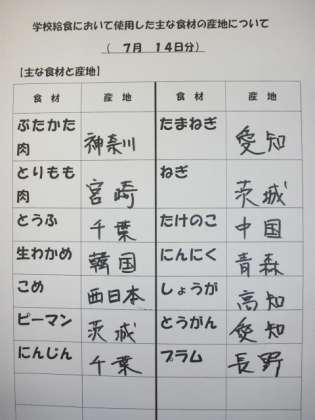 学校給食において使用した主な食材の産地について
( 7月 14日分)
【主な食材と産地】
食材 産地 食材 産地
ぶたかた肉 神奈川 たまねぎ 愛知
とりもも肉 宮崎 ねぎ 茨城
とうふ 千葉 たけのこ 中国
生わかめ 韓国 にんにく 青森
こめ 西日本 しょうが 高知
ピーマン 茨城 とうがん 愛知
にんじん 千葉 プラム 長野